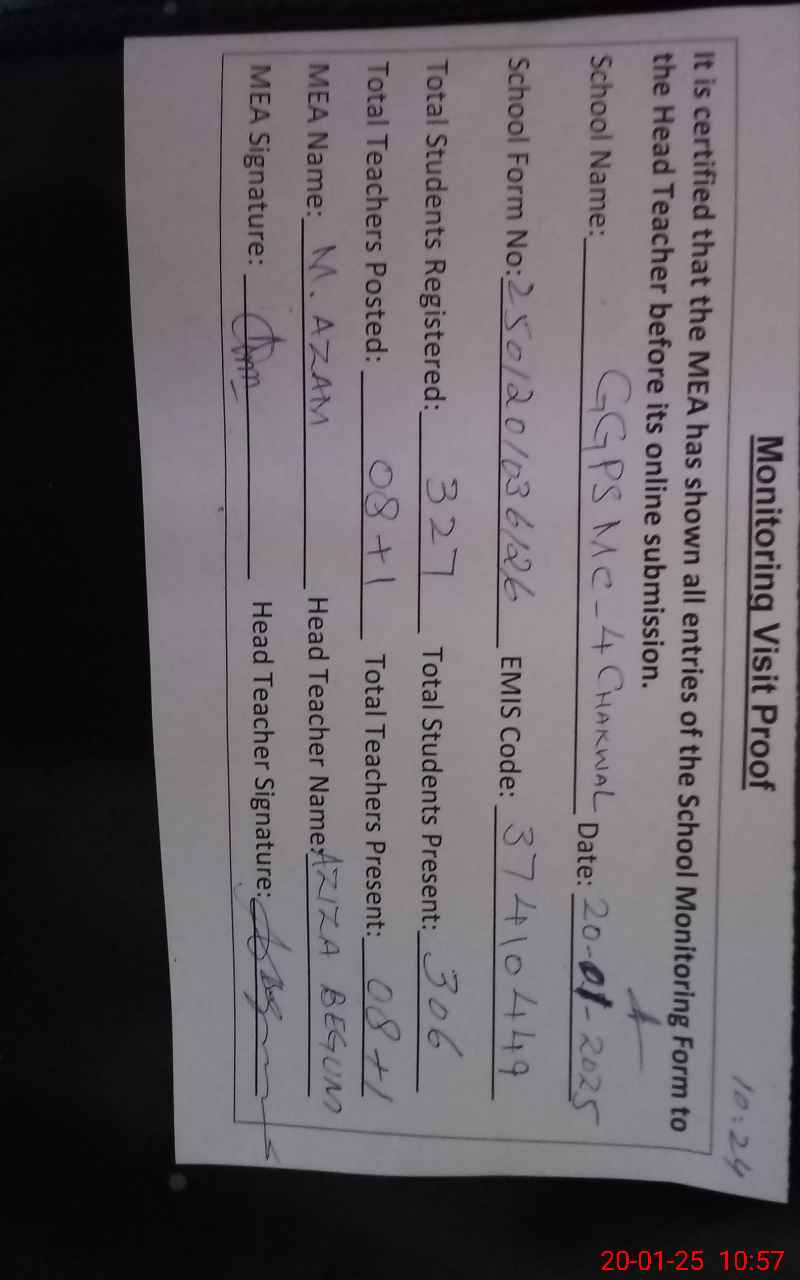 10:24
Monitoring Visit Proof
It is certified that the MEA has shown all entries of the School Monitoring Form to
the Head Teacher before its online submission.
School Name: GGPS MC-4 CHAKWAL Date: 20-01-2025
School Form No: 2501201036126 EMIS Code: 37410449
Total Students Registered: 327 Total Students Present: 306
Total Teachers Posted: 08+1 Total Teachers Present: 08+1
MEA Name: M. AZAM Head Teacher Name: AZIZA BEGUM
MEA Signature: Head Teacher Signature:
20-01-25 10:57